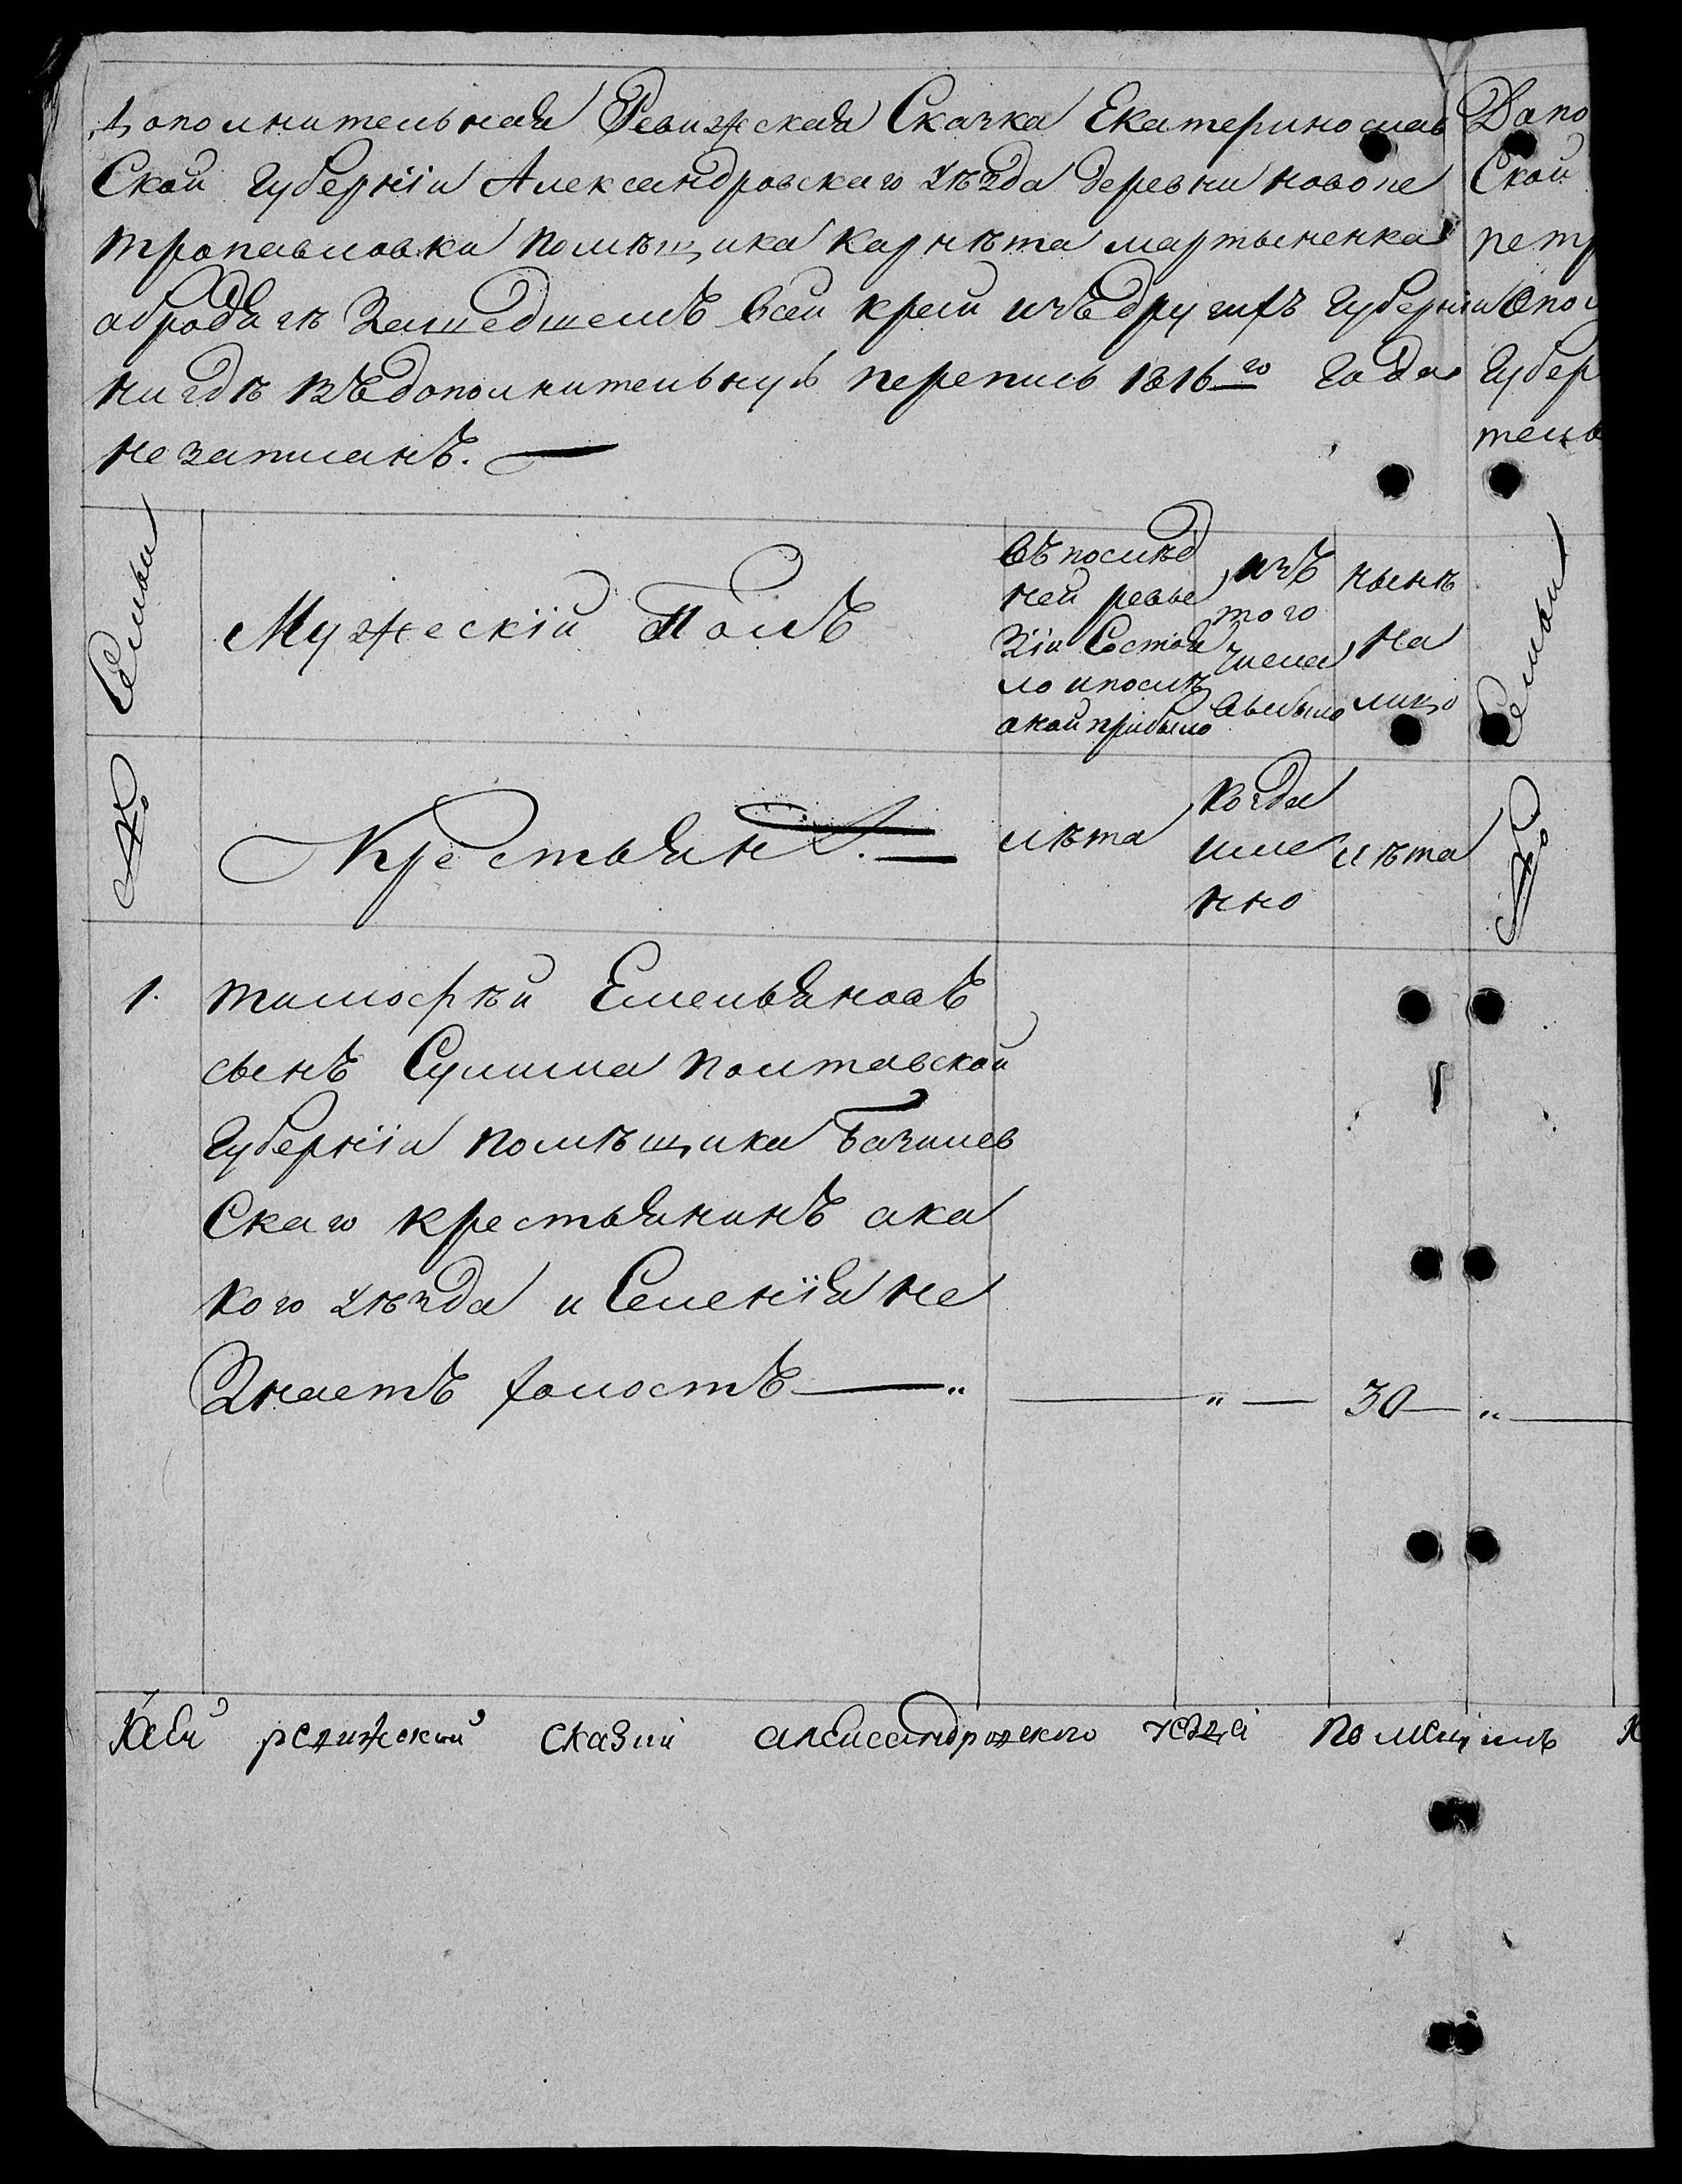 Дополнительная Ревижская Скачка Екатеринослав
Ской Губерніи Александровскаго уѣзда деревни новопе
тропавловки помѣщика карнѣта мартыненка
абродягѣ Зашедшемъ Всей край изъ другихъ Губерніи
нигдѣ въ дополнительную перепись 1816го Года
незаписанъ. —
Допо
Ской
петр
Опо
Губер
тель
Семьи
Мужескій Полъ
Въ послѣд
ней реви
зіи Состоя
ло и послѣ
оной прибыло
изъ
того
числа
Выбыло
нынѣ
на
лицо
Семьи
№
Крестьянъ. —
лѣта
когда
име
нно
лѣта
№
1. тимофѣй Емельяновъ
сынъ Сулима полтавской
Губерніи помѣщика Базилев
Скаго крестьянинъ ака
кого уѣзда и Селенія не
Знаетъ холостъ — „ — „ — 30 — „ —
Къ сей ревижской сказки александровского помещикъ К